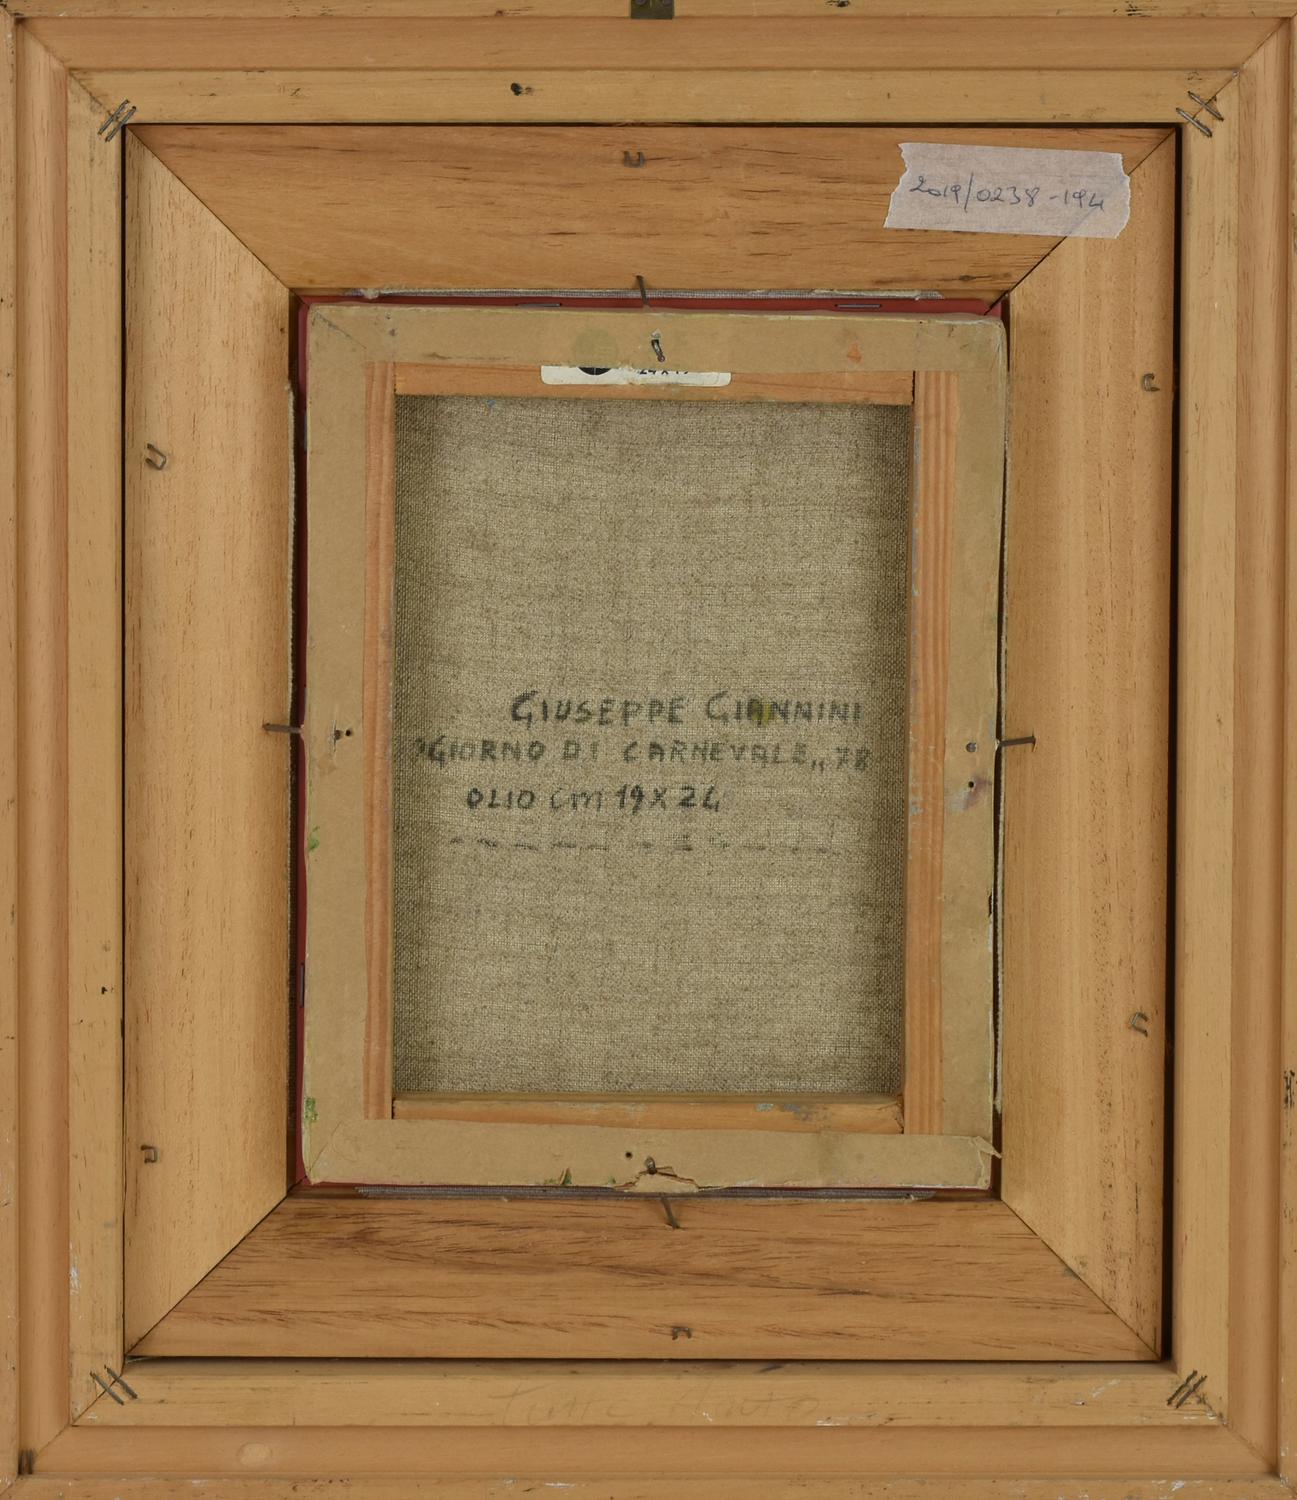 2019/0238-194
24 x 19
GIUSEPPE GIANNINI
"GIORNO DI CARNEVALE„ 78
OLIO cm 19 X 24